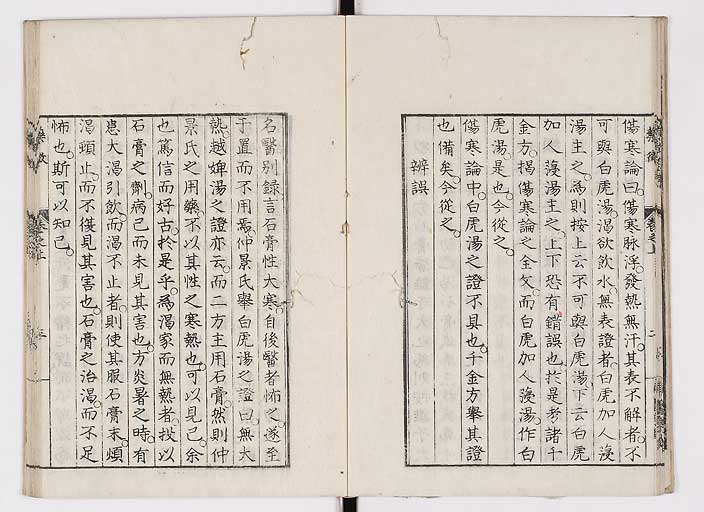 傷寒論曰。傷寒脉浮。發熱無汗。其表不解者。不
可與白虎湯。渴欲飲水。無表證者。白虎加人薓
湯主之。為則按。上云不可與白虎湯。下云白虎
加人薓湯主之。上下恐有錯誤也。於是考諸千
金方。揭傷寒論之全文。而白虎加人薓湯。作白
虎湯。是也。今從之。
傷寒論中。白虎湯之證不具也。千金方舉其證
也備矣。今從之。
辨誤
名醫別錄言石膏性大寒。自後醫者怖之。遂至
于置而不用焉。仲景氏舉白虎湯之證曰。無大
熱。越婢湯之證亦云。而二方主用石膏。然則仲
景氏之用藥。不以其性之寒熱也。可以見已。余
也篤信而好古。於是乎為渴家而無熱者。投以
石膏之劑。病已而未見其害也。方炎暑之時。有
患大渴引飲。而渴不止者。則使其服石膏末。煩
渴頓止。而不復見其害也。石膏之治渴。而不足
怖也。斯可以知已。